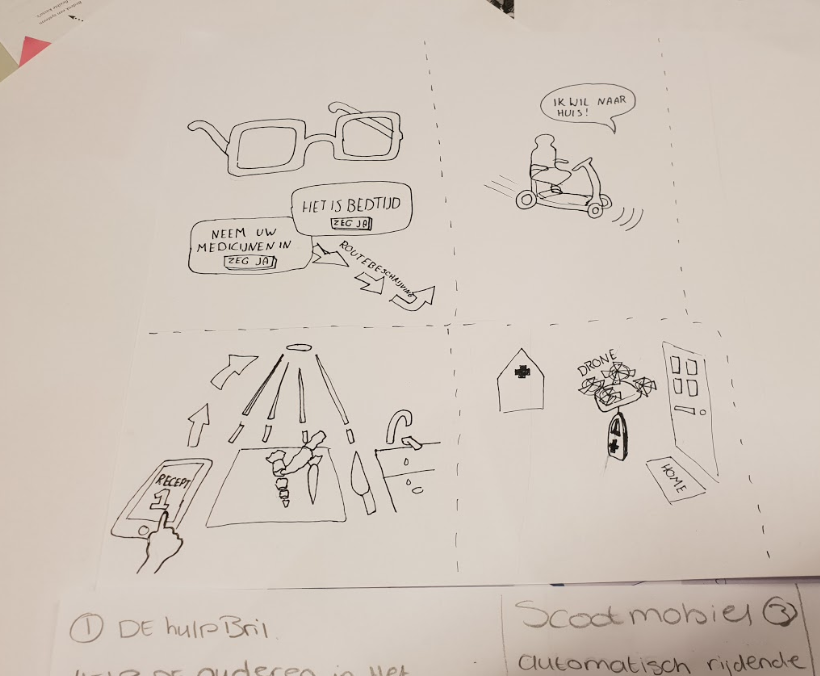 HET IS BEDTIJD
ZEG JA
NEEM UW
MEDICIJNEN IN
ZEG JA
ROUTEBESCHRIJVING
IK WIL NAAR
HUIS!
RECEPT
1
DRONE
HOME
① DE hulpBril.
DE ouderen in Het
Scootmobiel ③
automatisch rijdende